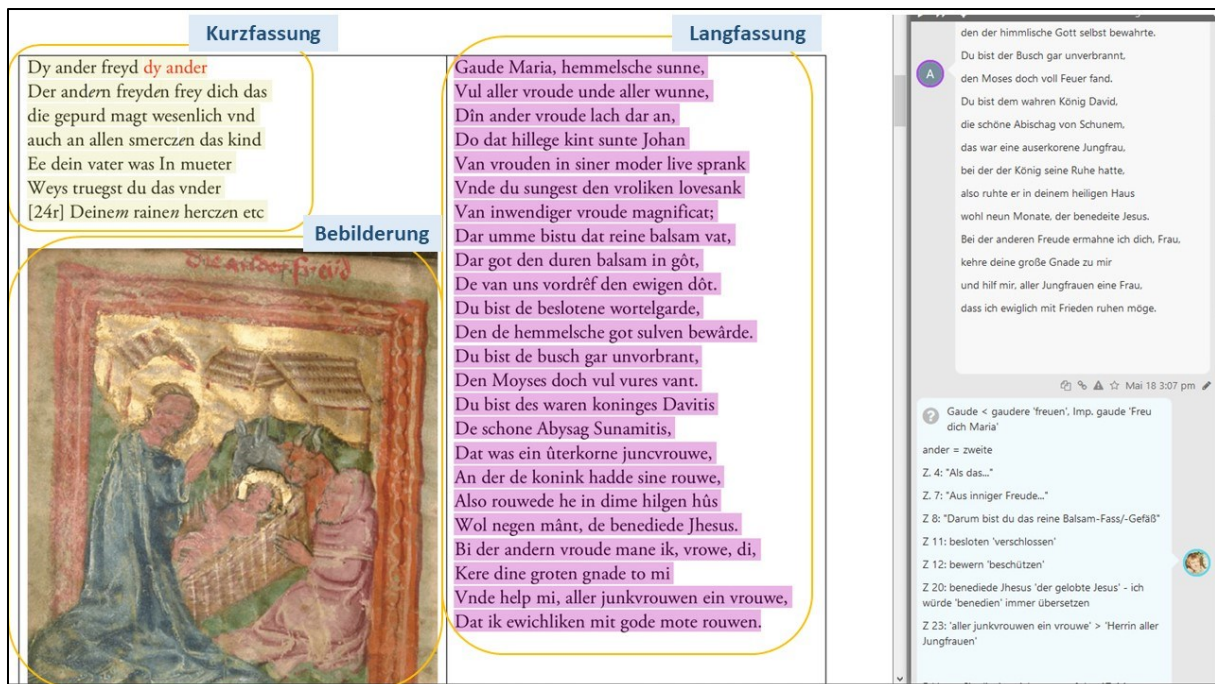 Kurzfassung
Dy ander freyd dy ander
Der andern freyden frey dich das
die gepurd magt wesenlich vnd
auch an allen smerczen das kind
Ee dein vater was In mueter
Weys truegst du das vnder
[24r] Deinem rainen herczen etc
Bebilderung
Langfassung
Gaude Maria, hemmelsche sunne,
Vul aller vroude unde aller wunne,
Dîn ander vroude lach dar an,
Do dat hillege kint sunte Johan
Van vrouden in siner moder live sprank
Vnde du sungest den vroliken lovesank
Van inwendiger vroude magnificat;
Dar umme bistu dat reine balsam vat,
Dar got den duren balsam in gôt,
De van uns vordrêf den ewigen dôt.
Du bist de beslotene wortelgarde,
Den de hemmelsche got sulven bewârde.
Du bist de busch gar unvorbrant,
Den Moyses doch vul vures vant.
Du bist des waren koninges Davitis
De schone Abysag Sunamitis,
Dat was ein ûterkorne juncvrouwe,
An der de konink hadde sine rouwe,
Also rouwede he in dime hilgen hûs
Wol negen mânt, de benediede Jhesus.
Bi der andern vroude mane ik, vrowe, di,
Kere dine groten gnade to mi
Vnde help mi, aller junkvrouwen ein vrouwe,
Dat ik ewichliken mit gode mote rouwen.
den der himmlische Gott selbst bewahrte.
Du bist der Busch gar unverbrannt,
den Moses doch voll Feuer fand.
A
Du bist dem wahren König David,
die schöne Abischag von Schunem,
das war eine auserkorene Jungfrau,
bei der der König seine Ruhe hatte,
also ruhte er in deinem heiligen Haus
wohl neun Monate, der benedeite Jesus.
Bei der anderen Freude ermahne ich dich, Frau,
kehre deine große Gnade zu mir
und hilf mir, aller Jungfrauen eine Frau,
dass ich ewiglich mit Frieden ruhen möge.
Mai 18 3:07 pm
Gaude < gaudere 'freuen', Imp. gaude 'Freu
dich Maria'
ander = zweite
Z. 4: "Als das..."
Z. 7: "Aus inniger Freude..."
Z 8: "Darum bist du das reine Balsam-Fass/-Gefäß"
Z 11: besloten 'verschlossen'
Z 12: bewern 'beschützen'
Z 20: benediede Jhesus 'der gelobte Jesus' - ich
würde 'benedien' immer übersetzen
Z 23: 'aller junkvrouwen ein vrouwe' > 'Herrin aller
Jungfrauen'